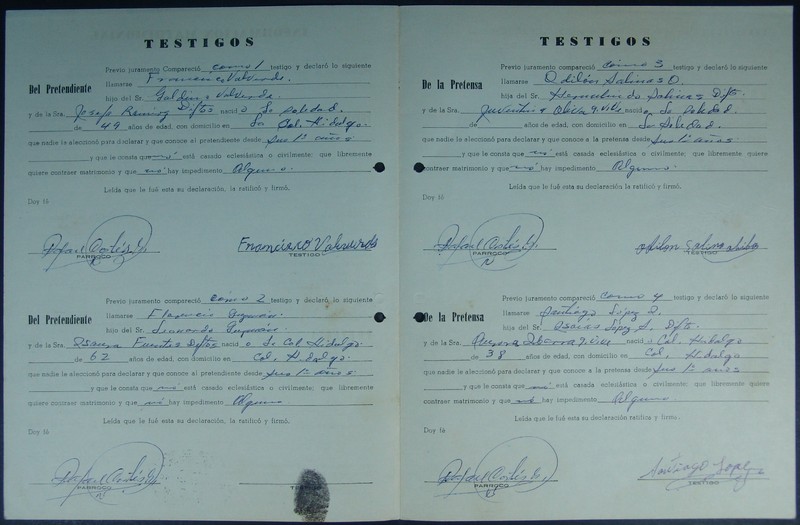 TESTIGOS
Previo juramento Compareció como 1 testigo y declaró lo siguiente
Del Pretendiente
llamarse Francisco Valverde.
hijo del Sr. Valverde
y de la Sra. Josefa Ramos Diftos nacid o La Soledad
de 49 años de edad, con domicilio en La Col. Hidalgo.
que nadie le aleccionó para declarar y que conoce al pretendiente desde sus 1os años
y que le consta que no está casada eclesiástica o civilmente; que libremente
quiere contraer matrimonio y que no hay impedimento Alguno.
Leída que le fué esta su declaración, la ratificó y firmó.
Doy fé
Rafael Cortés J.
PARROCO
Francisco Valverde
TESTIGO
Previo juramento compareció como 2 testigo y declaró lo siguiente
Del Pretendiente
llamarse Guzmán
hijo del Sr. Guzmán
y de la Sra. Fuentes Diftos nacid o Col Hidalgo
de 62 años de edad, con domicilio en Col. Hidalgo.
que nadie le aleccionó para declarar y que conoce al pretendiente desde sus 1os años
y que le consta que no está casada eclesiástica o civilmente; que libremente
quiere contraer matrimonio y que no hay impedimento Alguno
Leída que le fué esta su declaración, la ratificó y firmó.
Doy fé
Rafael Cortés J.
PARROCO
TESTIGOS
Previo juramento compareció como 3 testigo y declaró lo siguiente
De la Pretensa
llamarse Odilón Salinas O.
hijo del Sr. Hermelindo Salinas Difto.
y de la Sra. Juventina Oliva q. vive nacid o La Soledad
de años de edad, con domicilio en La Soledad.
que nadie le aleccionó para declarar y que conoce a la pretensa desde sus 1os años
y que le consta que no está casada eclesiástica o civilmente; que libremente quiere
contraer matrimonio y que no hay impedimento Alguno.
Leída que le fué esta su declaración la ratificó y firmó.
Doy fé
Rafael Cortés J.
PARROCO
Odilon Salinas
TESTIGO
Previo juramento compareció como 4 testigo y declaró lo siguiente
De la Pretensa
llamarse Santiago López
hijo del Sr. Isaías López S. Difto.
y de la Sra. q. vive nacid o Col. Hidalgo
de 38 años de edad, con domicilio en Col. Hidalgo
que nadie le aleccionó para declarar y que conoce a la pretensa desde sus 1os años
y que le consta que no está casada eclesiástica o civilmente; que libremente quiere
contraer matrimonio y que no hay impedimento Alguno
Leída que le fué esta su declaración ratificó y firmó.
Doy fé
Rafael Cortés J.
PARROCO
Santiago Lopez
TESTIGO